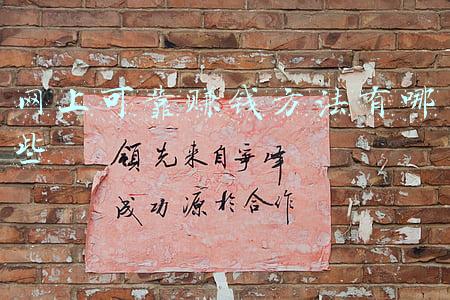 网上可靠赚钱方法有哪
些
领先来自争峰
成功源于合作